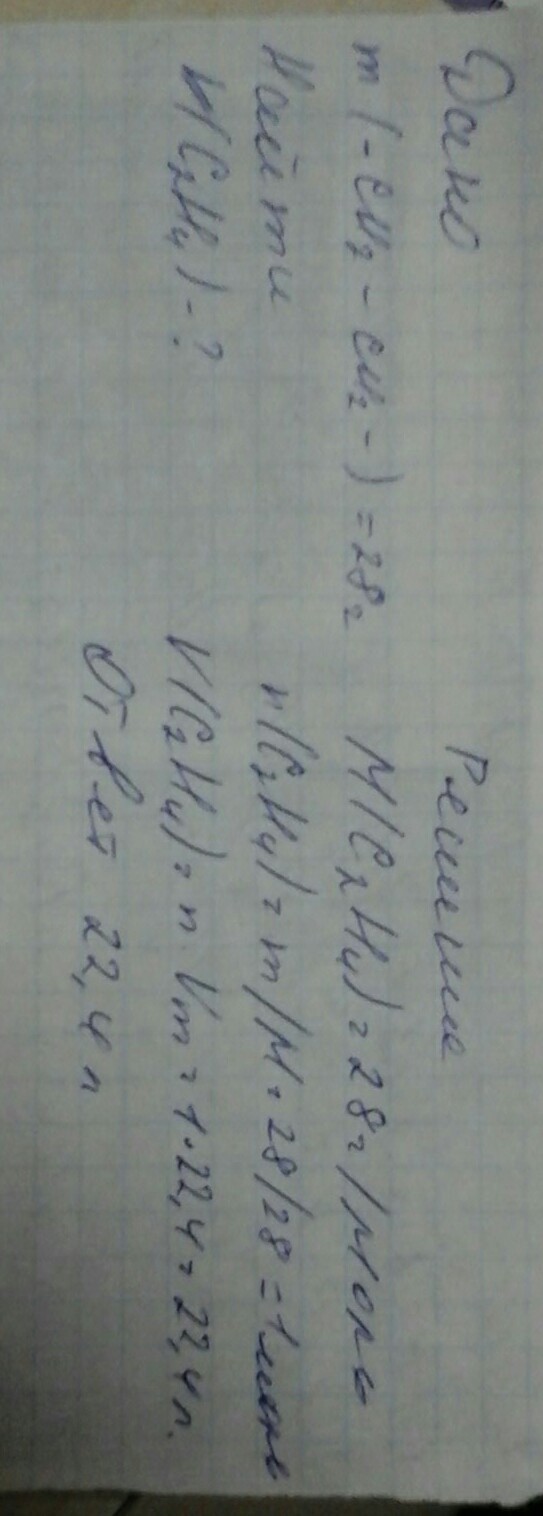 Дано
m(-CH₂-CH₂-)=28г
Найти
V(C₂H₄)-?
Решение
M(C₂H₄)=28г/моль
n(C₂H₄)=m/M=28/28=1моль
V(C₂H₄)=n·Vm=1·22,4=22,4л.
Ответ 22,4л